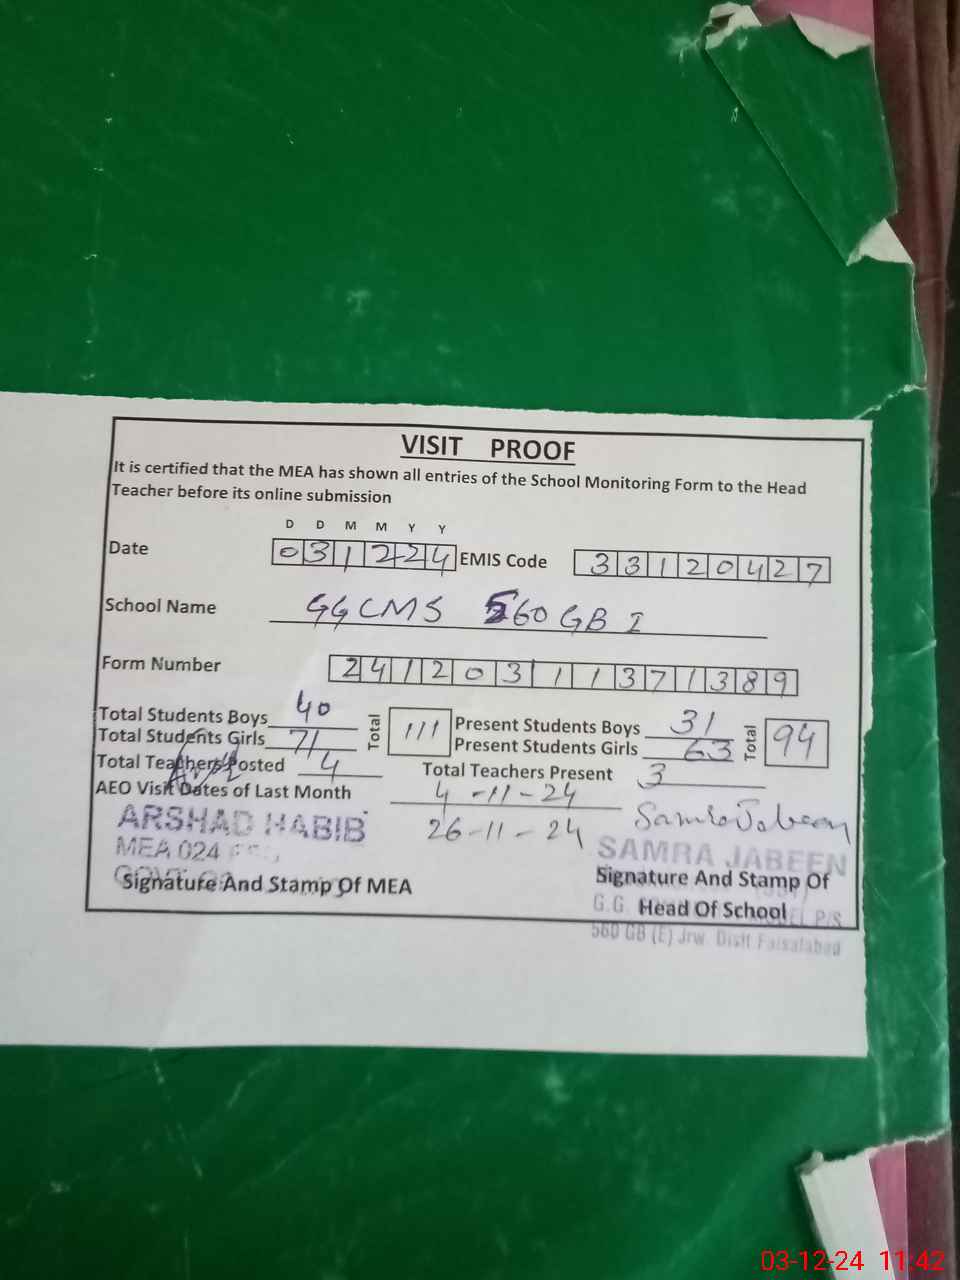 VISIT PROOF
It is certified that the MEA has shown all entries of the School Monitoring Form to the Head
Teacher before its online submission
D D M M Y Y
Date 031224 EMIS Code 33120427
School Name GGCMS 560 GB I
Form Number 24120311371389
Total Students Boys 40 Total 111 Present Students Boys 31 Total 94
Total Students Girls 71 Present Students Girls 63
Total Teachers Posted 4 Total Teachers Present 3
AEO Visit Dates of Last Month 4-11-24
26-11-24 Samra Jabeen
ARSHAD HABIB
MEA 024
SAMRA JABEEN
Signature And Stamp Of MEA Signature And Stamp Of
G.G. Head Of School P/S
560 GB (E) Jrw. Distt Faisalabad
03-12-24 11:42